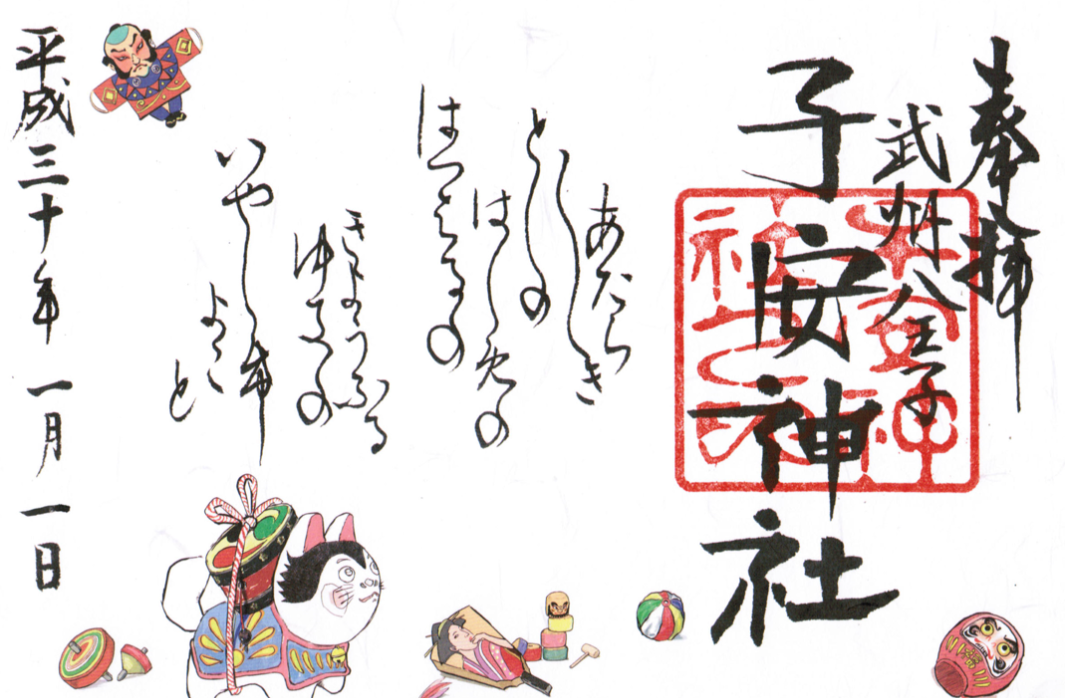 奉拝
武州八王子
子安神社
あたらしき
としの
はしめの
はつはるの
きようふる
ゆきの
いやしけ
よこと
平成三十年 一月一日